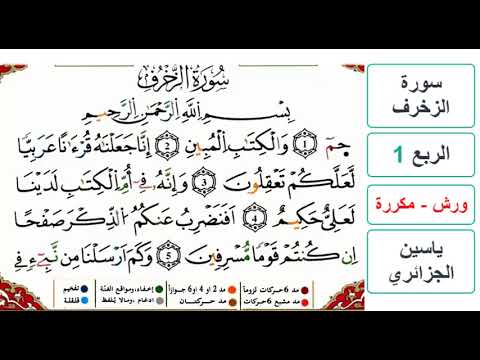 سُورَةُ الزُّخْرُفِ
بِسْمِ اللَّهِ الرَّحْمَٰنِ الرَّحِيمِ
حمٓ ١ وَالْكِتَٰبِ الْمُبِينِ ٢ إِنَّا جَعَلْنَٰهُ قُرْءَٰناً عَرَبِيّاً
لَّعَلَّكُمْ تَعْقِلُونَ ٣ وَإِنَّهُۥ فِےٓ أُمِّ الْكِتَٰبِ لَدَيْنَا
لَعَلِيٌّ حَكِيمٌ ٤ أَفَنَضْرِبُ عَنكُمُ الذِّكْرَ صَفْحاً
إِن كُنتُمْ قَوْماً مُّسْرِفِينَ ٥ وَكَمَ اَرْسَلْنَا مِن نَّبِےٓءٍ فِے
مد 6 حركات لزوماً
مد 2 أو 4 أو 6 جوازاً
إخفاء، ومواقع الغنة
تفخيم
مد مشبع 6 حركات
مد حركتان
ادغام ، ومالا يلفظ
قلقلة
سورة
الزخرف
الربع 1
ورش - مكررة
ياسين
الجزائري